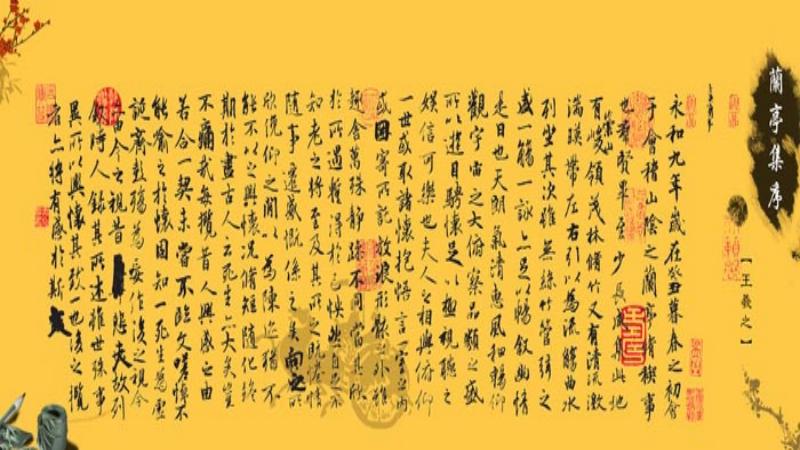 蘭亭集序
【王羲之】
永和九年歲在癸丑暮春之初會
于會稽山陰之蘭亭脩稧事
也羣賢畢至少長咸集此地
有崇山峻領茂林脩竹又有清流激
湍暎帶左右引以為流觴曲水
列坐其次雖無絲竹管弦之
盛一觴一詠亦足以暢敘幽情
是日也天朗氣清惠風和暢仰
觀宇宙之大俯察品類之盛
所以遊目騁懷足以極視聽之
娛信可樂也夫人之相與俯仰
一世或取諸懷抱悟言一室之內
或因寄所託放浪形骸之外雖
趣舍萬殊靜躁不同當其欣
於所遇蹔得於己怏然自足不
知老之將至及其所之既惓情
隨事遷感慨係之矣向之所
欣俛仰之閒以為陳迹猶不
能不以之興懷況脩短隨化終
期於盡古人云死生亦大矣豈
不痛哉每攬昔人興感之由
若合一契未嘗不臨文嗟悼不
能喻之於懷固知一死生為虛
誕齊彭殤為妄作後之視今
亦由今之視昔悲夫故列
敘時人錄其所述雖世殊事
異所以興懷其致一也後之攬
者亦將有感於斯文